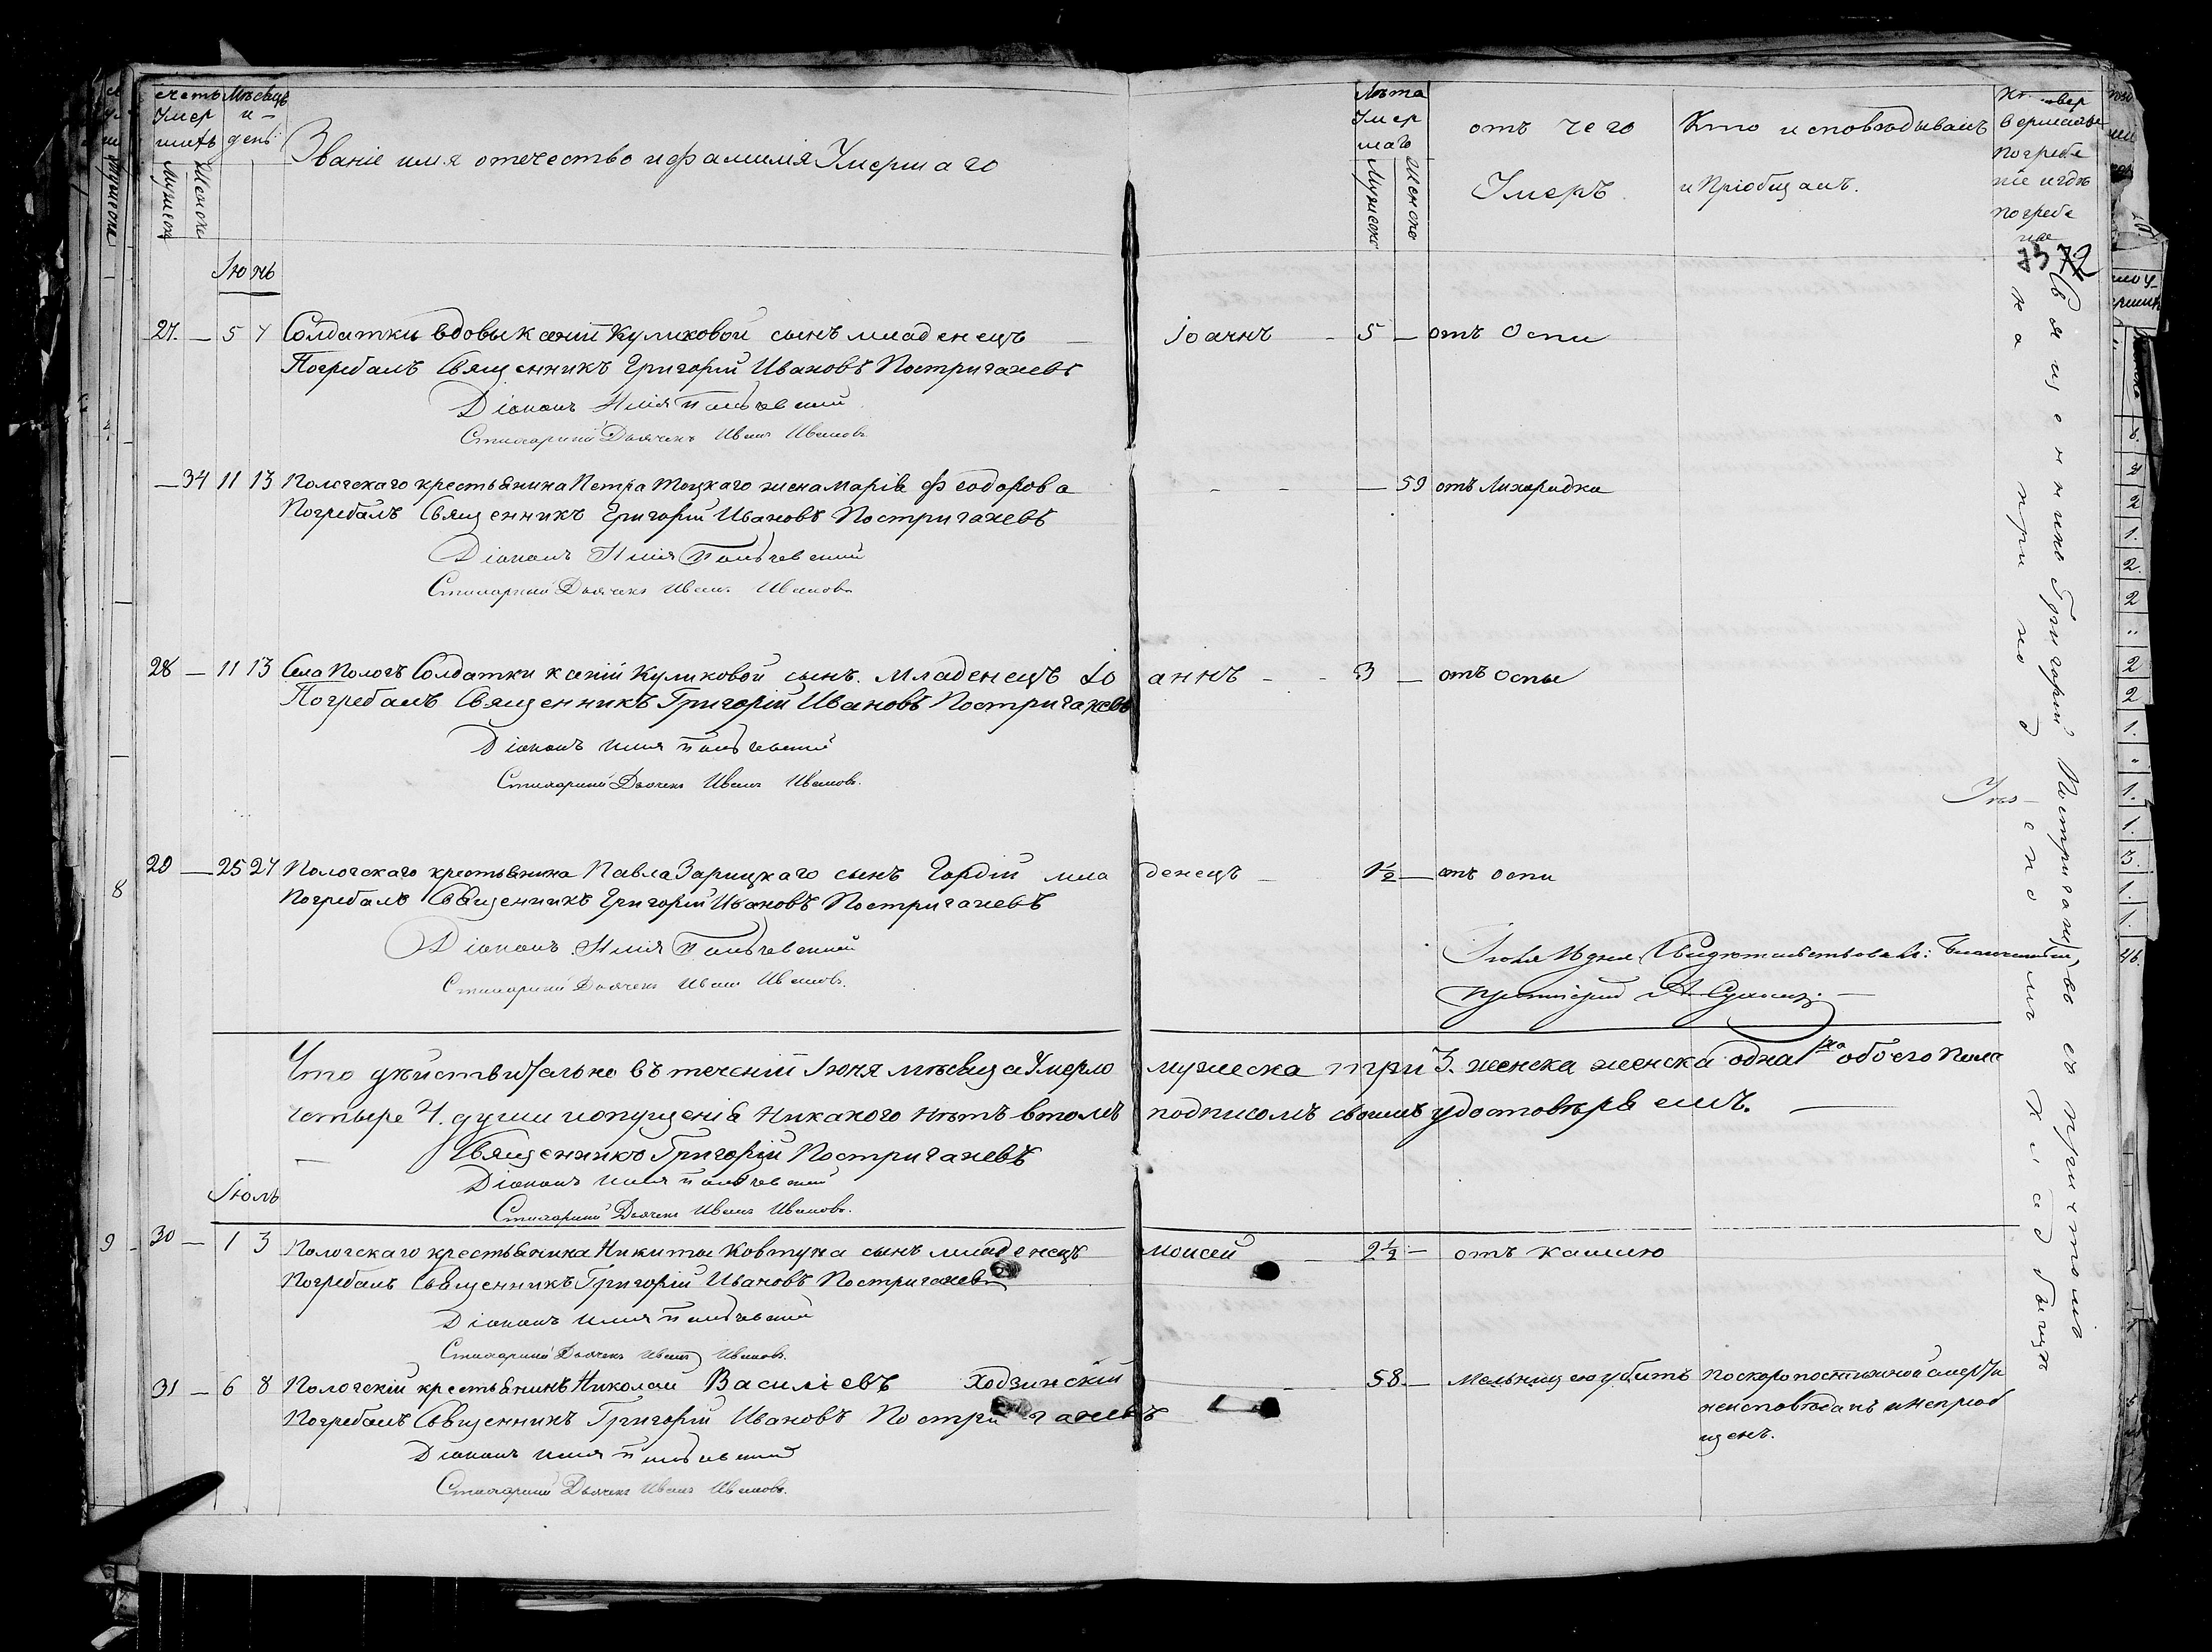 счетъ Умер шихъ
Мѣсецъ и день
Званіе имя отечество и фамилія Умершаго
Лѣта Умер шаго
отъ чего Умеръ
Кто исповѣдывалъ и Пріобщалъ.
Мужеска Женска
Мужеска Женска
погребе ніе и гдѣ погребе
72
Іюнь
27. — 5 7 Солдатки вдовы Ксеніи Куликовой сынъ младенецъ — Іоаннъ - 5 — отъ Оспи
Погребалъ Священникъ Григорій Ивановъ Постригачевъ
Діаконъ Илія
Стихарный Дьячекъ Иванъ Ивановъ
— 34 11 13 Пологскаго крестьянина Петра Тоцкаго жена Марія Феодорова - - — 59 отъ Лихорадки
Погребалъ Священникъ Григорій Ивановъ Постригачевъ
Діаконъ Илія
Стихарный Дьячекъ Иванъ Ивановъ
28 — 11 13 Села Пологъ Солдатки Ксеніи Куликовой сынъ. младенецъ Іоаннъ - - 3 — отъ оспы
Погребалъ Священникъ Григорій Ивановъ Постригачевъ
Діаконъ Илія
Стихарный Дьячекъ Иванъ Ивановъ.
29 — 25 27 Пологскаго крестьянина Павла Зарицкаго сынъ Гордій мла денецъ — 1½ — отъ оспи
Погребалъ Священникъ Григорій Ивановъ Постригачевъ
Діаконъ Илія
Стихарный Дьячекъ Иванъ Ивановъ.
Іюля дня Свидѣтельствовалъ: Благочинный,
протоіерей А.
Что дѣйствительно въ теченіи Іюня мѣсяца Умерло мужеска три 3. женска женска одна 1на обоего пола
четыре 4. души и опущенія никакого нѣтъ в томъ подписомъ своимъ удостовѣряемъ. —
Священникъ Григорій Постригачевъ
Діаконъ Илія
Стихарный Дьячекъ Иванъ Ивановъ.
Іюль
30 — 1 3 Пологскаго крестьянина Никиты Ковтуна сынъ младенецъ Моисей — 2½ — отъ кашлю
Погребалъ Священникъ Григорій Ивановъ Постригачевъ
Діаконъ Илія
Стихарный Дьячекъ Иванъ Ивановъ.
31 — 6 8 Пологскій крестьянинъ Николай Василіевъ Ходзинскій — 58. — Мельницею убитъ По скоропостижной смерти
неисповѣданъ и непріоб
щенъ.
Погребалъ Священникъ Григорій Ивановъ Постригачевъ
Діаконъ Илія
Стихарный Дьячекъ Иванъ Ивановъ.
Священникъ Григорій Постригачевъ со причтомъ
на приходскомъ кладбищи
8
9